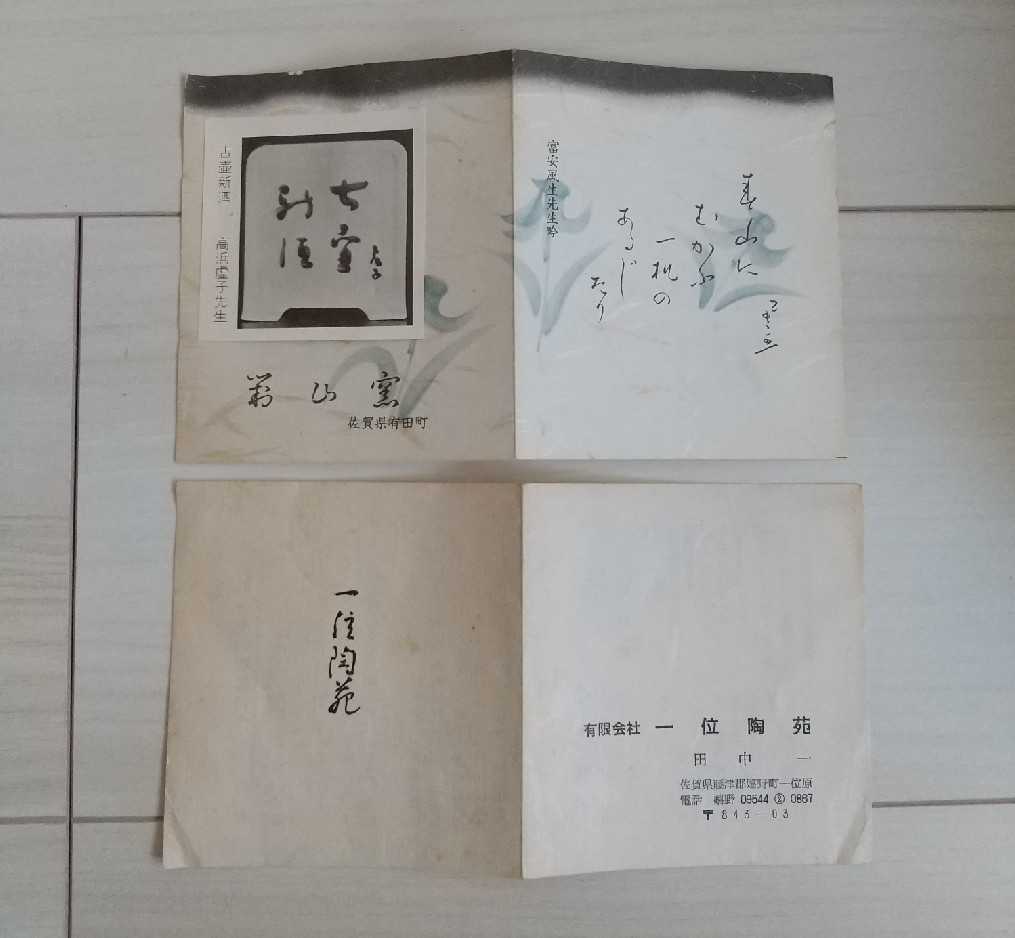 古壺新酒
高浜虚子先生
古壺
新酒
虚子
窯
佐賀県有田町
富安風生先生吟
春山に
むかふ
一机の
あるじ
たり
風生
一位陶苑
有限会社 一位陶苑
田中一
佐賀県藤津郡嬉野町一位原
電話 嬉野 09544 ② 0867
〒843-03